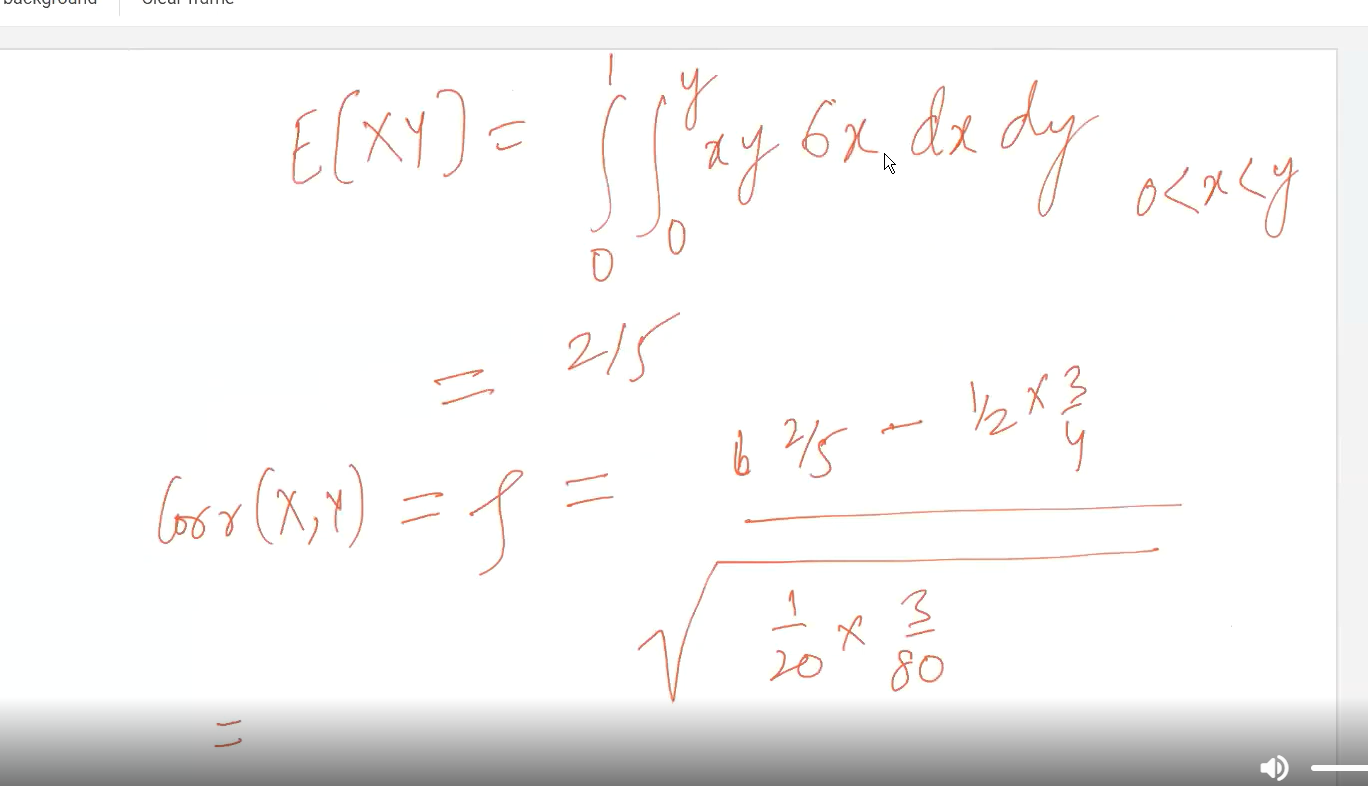 background Clear frame
E[XY] = ∫₀¹ ∫₀ʸ xy 6x dx dy
0<x<y
= 2/5
Corr(X,Y) = ρ = (2/5 - 1/2 × 3/4) / √(1/20 × 3/80)
=